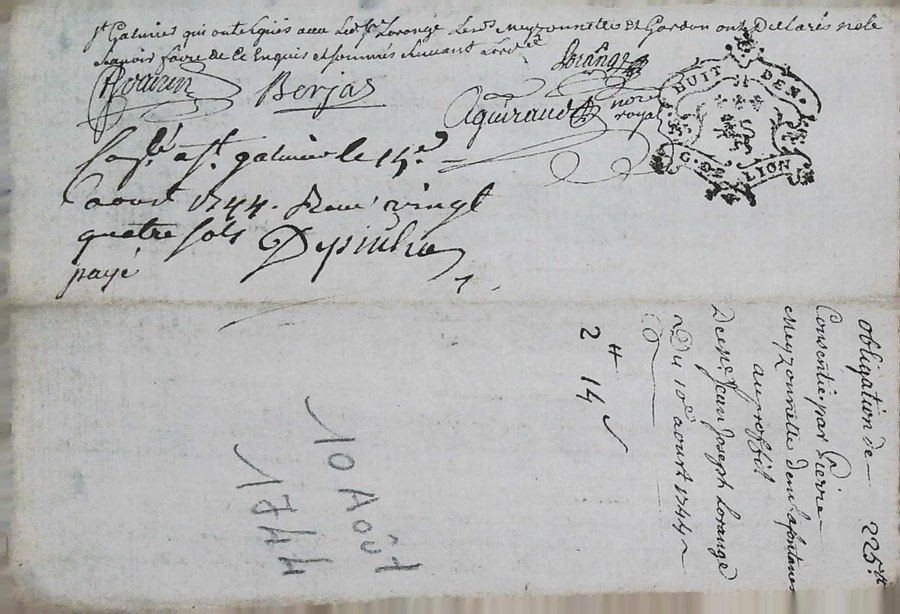 St Galmier qui ont signés avec led. Sr Lorange Les d. Meyzonnette et Gardon ont Declarés ne le
scavoir faire de ce Enquis et sommés suivant
Lorange
Berjas
Aguiraud nore
royal
HUIT DEN.
G. LION
a St galmier le 14e
aoust 1744. Recu vingt
quatre sols
payé
obligation de 225tt
Consentie par Pierre
Meyzonnette de
au proffit
De Sr Jean Joseph Lorange
Du 10e aoust 1744
2tt 14s
10 Août
1744